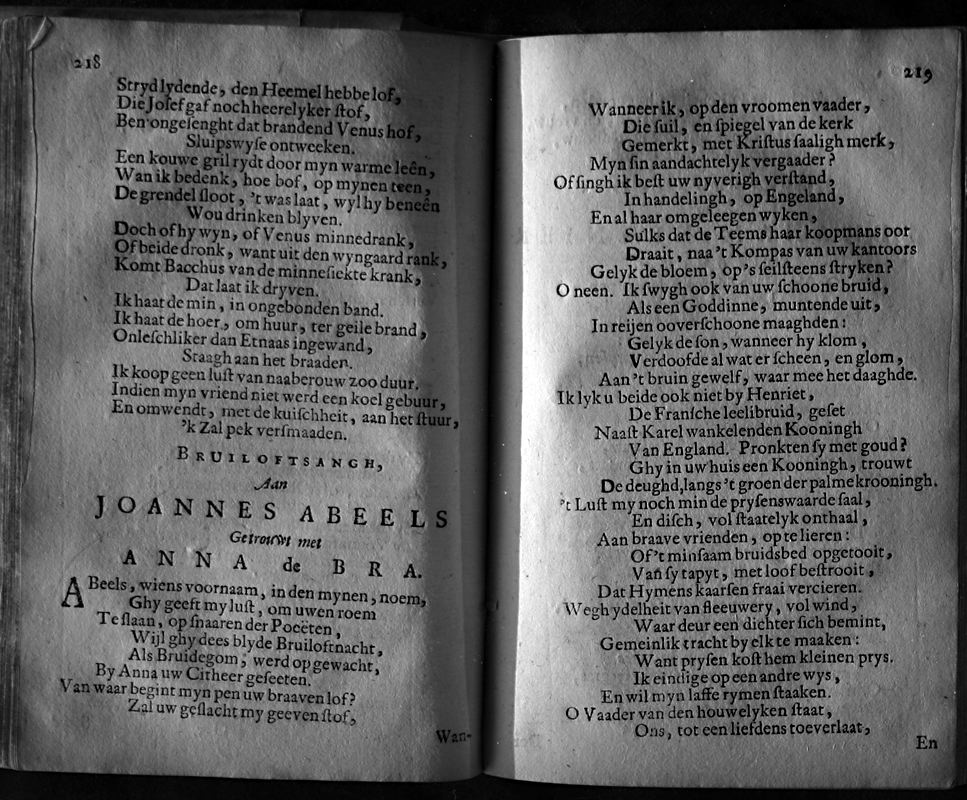 218
Strydlydende, den Heemel hebbe lof,
Die Josef gaf noch heerelyker stof,
Ben ongesenght dat brandend Venus hof,
Sluipswyse ontweeken.
Een kouwe gril rydt door myn warme leên,
Wan ik bedenk, hoe bof, op mynen teen,
De grendel sloot, 't was laat, wyl hy beneên
Wou drinken blyven.
Doch of hy wyn, of Venus minnedrank,
Of beide dronk, want uit den wyngaard rank,
Komt Bacchus van de minnesiekte krank,
Dat laat ik dryven.
Ik haat de min, in ongebonden band.
Ik haat de hoer, om huur, ter geile brand,
Onleschliker dan Etnaas ingewand,
Staagh aan het braaden.
Ik koop geen lust van naaberouw zoo duur.
Indien myn vriend niet werd een koel gebuur,
En omwendt, met de kuischheit, aan het stuur,
'k Zal pek versmaaden.
BRUILOFTSANGH,
Aan
JOANNES ABEELS
Getrouwt met
ANNA de BRA.
ABeels, wiens voornaam, in den mynen, noem,
Ghy geeft my lust, om uwen roem
Te slaan, op snaaren der Poeëten,
Wijl ghy dees blyde Bruiloftnacht,
Als Bruidegom, werd op gewacht,
By Anna uw Citheer geseeten.
Van waar begint myn pen uw braaven lof?
Zal uw geslacht my geeven stof,
Wan-
219
Wanneer ik, op den vroomen vaader,
Die suil, en spiegel van de kerk
Gemerkt, met Kristus saaligh merk,
Myn sin aandachtelyk vergaader?
Of singh ik best uw nyverigh verstand,
In handelingh, op Engeland,
En al haar omgeleegen wyken,
Sulks dat de Teems haar koopmans oor
Draait, naa 't Kompas van uw kantoors
Gelyk de bloem, op's seilsteens stryken?
O neen. Ik swygh ook van uw schoone bruid,
Als een Goddinne, muntende uit,
In reijen ooverschoone maaghden:
Gelyk de son, wanneer hy klom,
Verdoofde al wat er scheen, en glom,
Aan 't bruin gewelf, waar mee het daaghde.
Ik lyk u beide ook niet by Henriet,
De Fransche leelibruid, geset
Naast Karel wankelenden Kooningh
Van England. Pronkten sy met goud?
Ghy in uw huis een Kooningh, trouwt
De deughd, langs 't groen der palmekrooningh.
't Lust my noch min de prysenswaarde saal,
En disch, vol staatelyk onthaal,
Aan braave vrienden, op te lieren:
Of 't minsaam bruidsbed opgetooit,
Van sy tapyt, met loof bestrooit,
Dat Hymens kaarsen fraai vercieren.
Wegh ydelheit van sleeuwery, vol wind,
Waar deur een dichter sich bemint,
Gemeinlik tracht by elk te maaken:
Want prysen kost hem kleinen prys.
Ik eindige op een andre wys,
En wil myn laffe rymen staaken.
O Vaader van den houwelyken staat,
Ons, tot een liefdens toeverlaat,
En